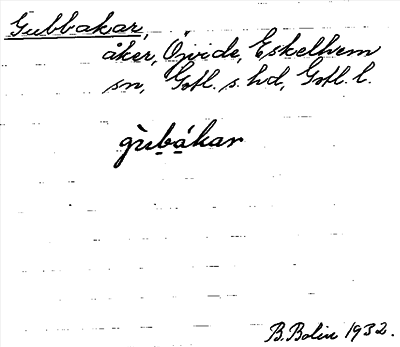 Gubbakar,
åker, Öjvide, Eskelhem
sn, Gotl. s. hd, Gotl. l.
gùbákar
B. Bolin 1932.